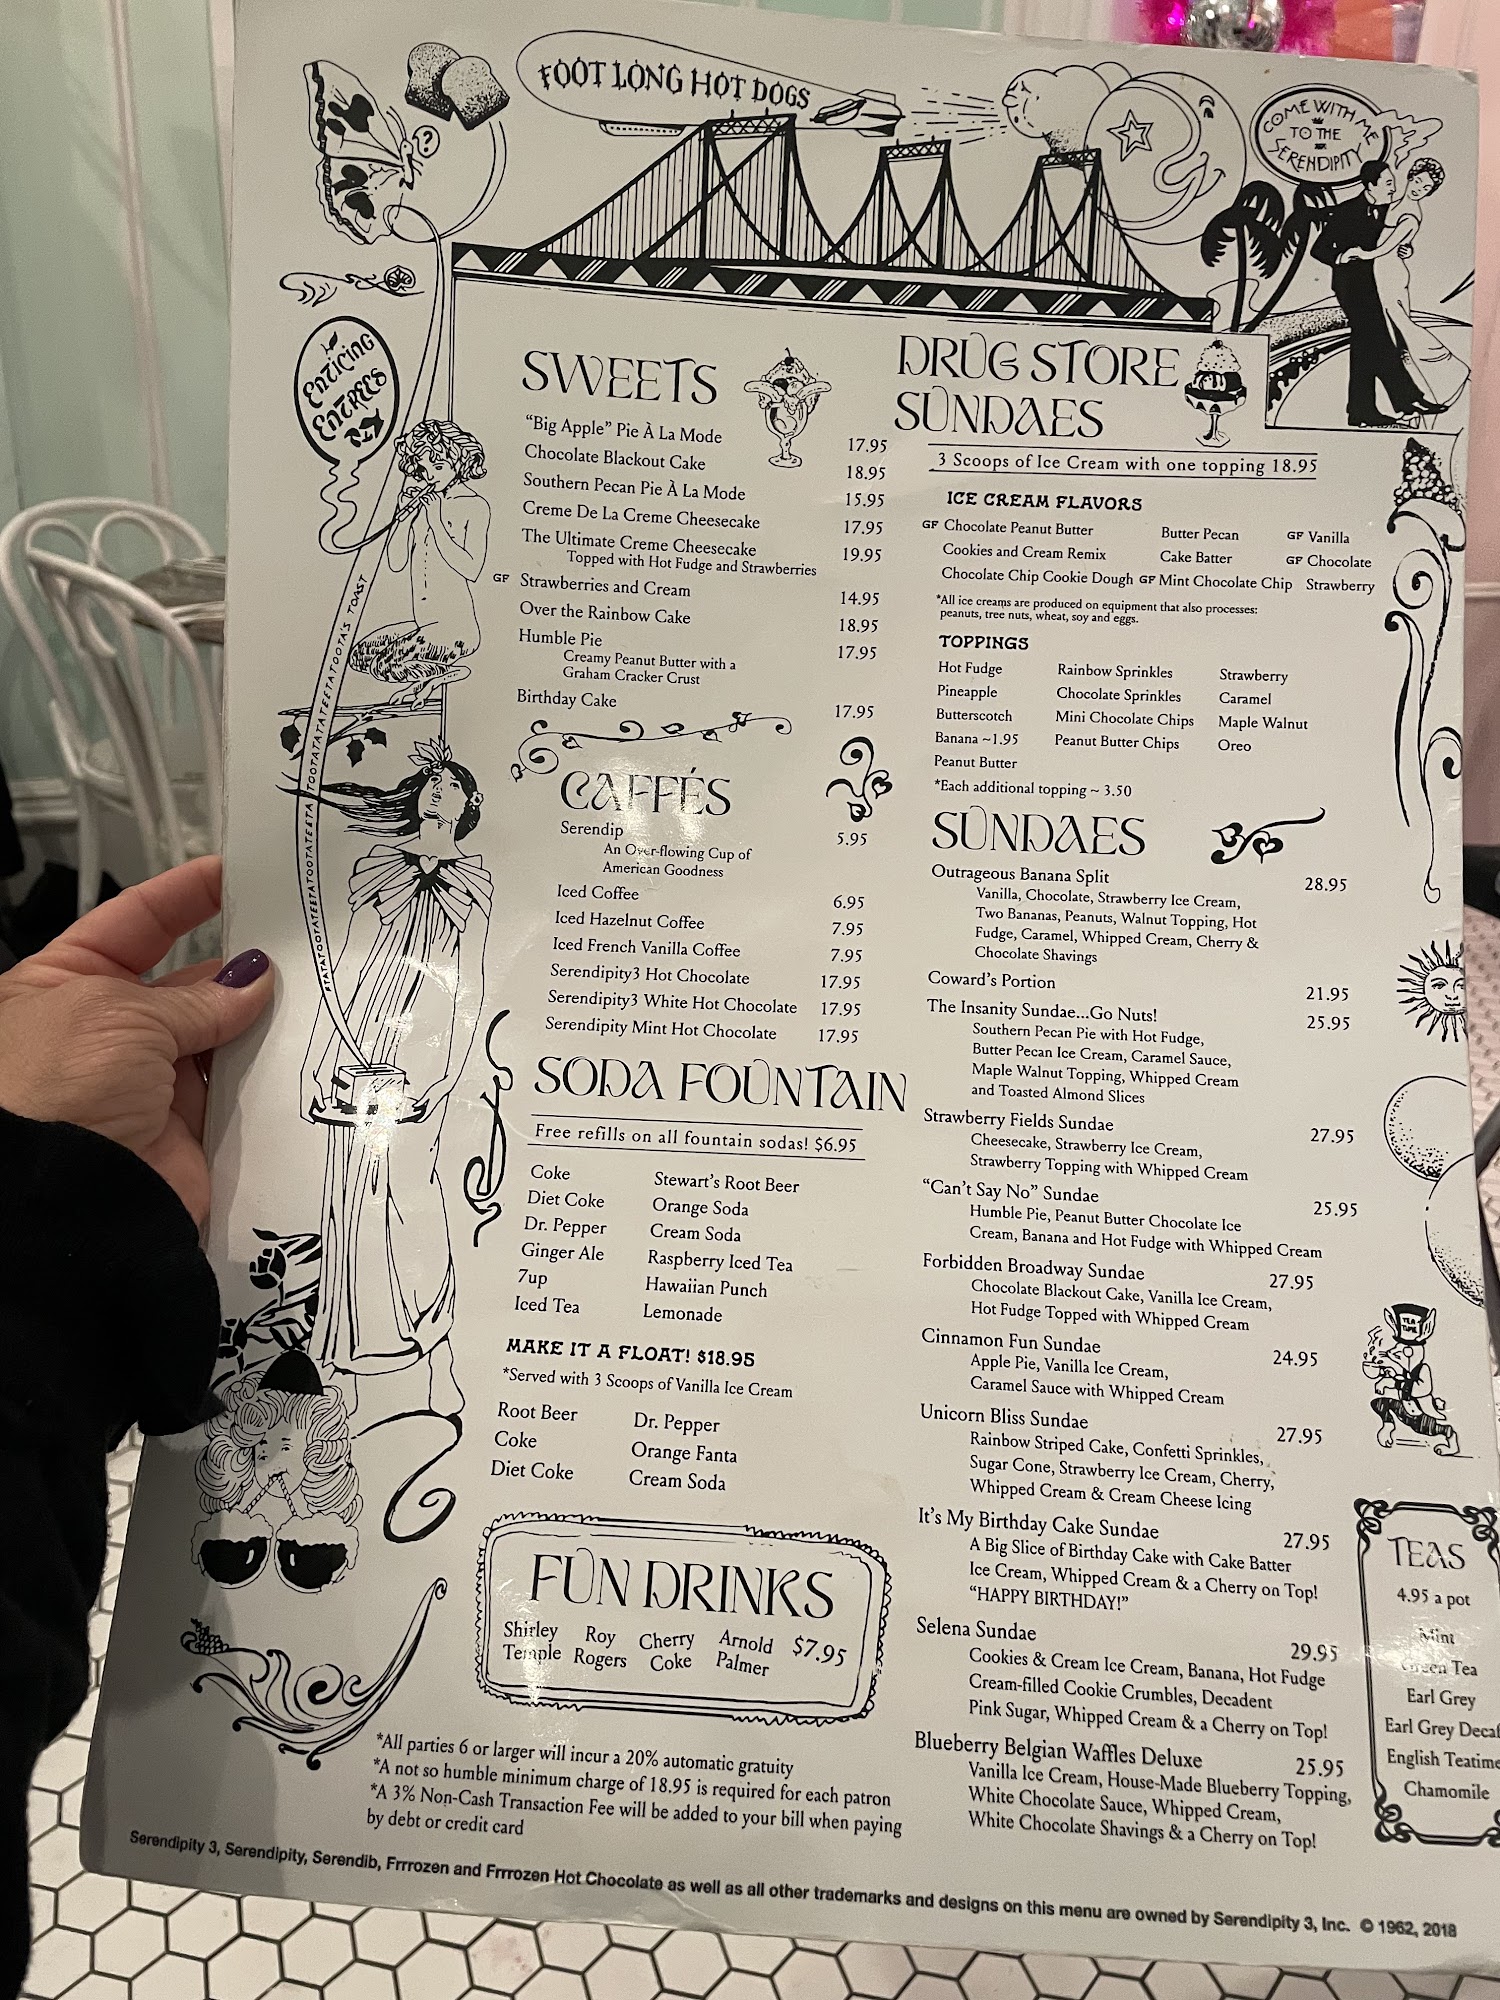 FOOT LONG HOT DOGS
COME WITH ME
TO THE
SERENDIPITY
?
ENTICING
ENTREES
SWEETS
"Big Apple" Pie À La Mode 17.95
Chocolate Blackout Cake 18.95
Southern Pecan Pie À La Mode 15.95
Creme De La Creme Cheesecake 17.95
The Ultimate Creme Cheesecake 19.95
Topped with Hot Fudge and Strawberries
GF Strawberries and Cream 14.95
Over the Rainbow Cake 18.95
Humble Pie 17.95
Creamy Peanut Butter with a
Graham Cracker Crust
Birthday Cake 17.95
CAFFÉS
Serendip 5.95
An Over-flowing Cup of
American Goodness
Iced Coffee 6.95
Iced Hazelnut Coffee 7.95
Iced French Vanilla Coffee 7.95
Serendipity3 Hot Chocolate 17.95
Serendipity3 White Hot Chocolate 17.95
Serendipity Mint Hot Chocolate 17.95
SODA FOUNTAIN
Free refills on all fountain sodas! $6.95
Coke Stewart's Root Beer
Diet Coke Orange Soda
Dr. Pepper Cream Soda
Ginger Ale Raspberry Iced Tea
7up Hawaiian Punch
Iced Tea Lemonade
MAKE IT A FLOAT! $18.95
*Served with 3 Scoops of Vanilla Ice Cream
Root Beer Dr. Pepper
Coke Orange Fanta
Diet Coke Cream Soda
FUN DRINKS
Shirley Roy Cherry Arnold $7.95
Temple Rogers Coke Palmer
*All parties 6 or larger will incur a 20% automatic gratuity
*A not so humble minimum charge of 18.95 is required for each patron
*A 3% Non-Cash Transaction Fee will be added to your bill when paying
by debt or credit card
DRUG STORE
SUNDAES
3 Scoops of Ice Cream with one topping 18.95
ICE CREAM FLAVORS
GF Chocolate Peanut Butter Butter Pecan GF Vanilla
Cookies and Cream Remix Cake Batter GF Chocolate
Chocolate Chip Cookie Dough GF Mint Chocolate Chip Strawberry
*All ice creams are produced on equipment that also processes:
peanuts, tree nuts, wheat, soy and eggs.
TOPPINGS
Hot Fudge Rainbow Sprinkles Strawberry
Pineapple Chocolate Sprinkles Caramel
Butterscotch Mini Chocolate Chips Maple Walnut
Banana ~1.95 Peanut Butter Chips Oreo
Peanut Butter
*Each additional topping ~ 3.50
SUNDAES
Outrageous Banana Split 28.95
Vanilla, Chocolate, Strawberry Ice Cream,
Two Bananas, Peanuts, Walnut Topping, Hot
Fudge, Caramel, Whipped Cream, Cherry &
Chocolate Shavings
Coward's Portion 21.95
The Insanity Sundae...Go Nuts! 25.95
Southern Pecan Pie with Hot Fudge,
Butter Pecan Ice Cream, Caramel Sauce,
Maple Walnut Topping, Whipped Cream
and Toasted Almond Slices
Strawberry Fields Sundae 27.95
Cheesecake, Strawberry Ice Cream,
Strawberry Topping with Whipped Cream
"Can't Say No" Sundae 25.95
Humble Pie, Peanut Butter Chocolate Ice
Cream, Banana and Hot Fudge with Whipped Cream
Forbidden Broadway Sundae 27.95
Chocolate Blackout Cake, Vanilla Ice Cream,
Hot Fudge Topped with Whipped Cream
Cinnamon Fun Sundae 24.95
Apple Pie, Vanilla Ice Cream,
Caramel Sauce with Whipped Cream
Unicorn Bliss Sundae 27.95
Rainbow Striped Cake, Confetti Sprinkles,
Sugar Cone, Strawberry Ice Cream, Cherry,
Whipped Cream & Cream Cheese Icing
It's My Birthday Cake Sundae 27.95
A Big Slice of Birthday Cake with Cake Batter
Ice Cream, Whipped Cream & a Cherry on Top!
"HAPPY BIRTHDAY!"
Selena Sundae 29.95
Cookies & Cream Ice Cream, Banana, Hot Fudge
Cream-filled Cookie Crumbles, Decadent
Pink Sugar, Whipped Cream & a Cherry on Top!
Blueberry Belgian Waffles Deluxe 25.95
Vanilla Ice Cream, House-Made Blueberry Topping,
White Chocolate Sauce, Whipped Cream,
White Chocolate Shavings & a Cherry on Top!
TEA
TIME
TEAS
4.95 a pot
Mint
Green Tea
Earl Grey
Earl Grey Decaf
English Teatime
Chamomile
Serendipity 3, Serendipity, Serendib, Frrrozen and Frrrozen Hot Chocolate as well as all other trademarks and designs on this menu are owned by Serendipity 3, Inc. © 1962, 2018